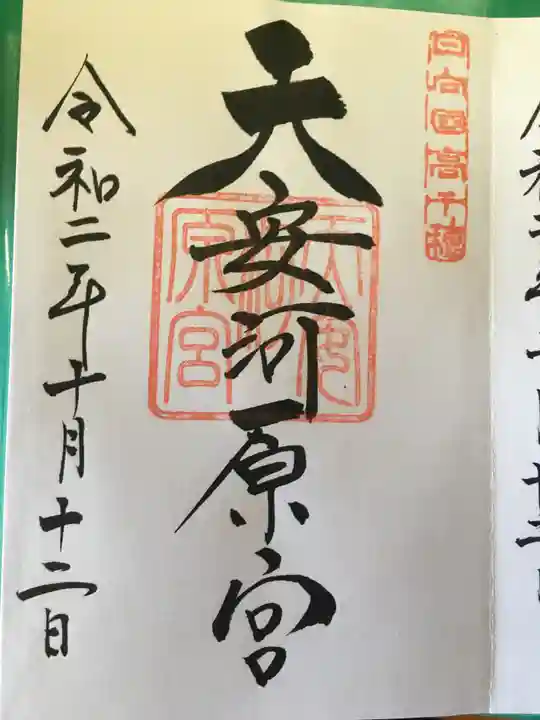 令和二年十月十二日
日向国高千穂
天安河原宮
天安河原宮
令和二年十月十二日